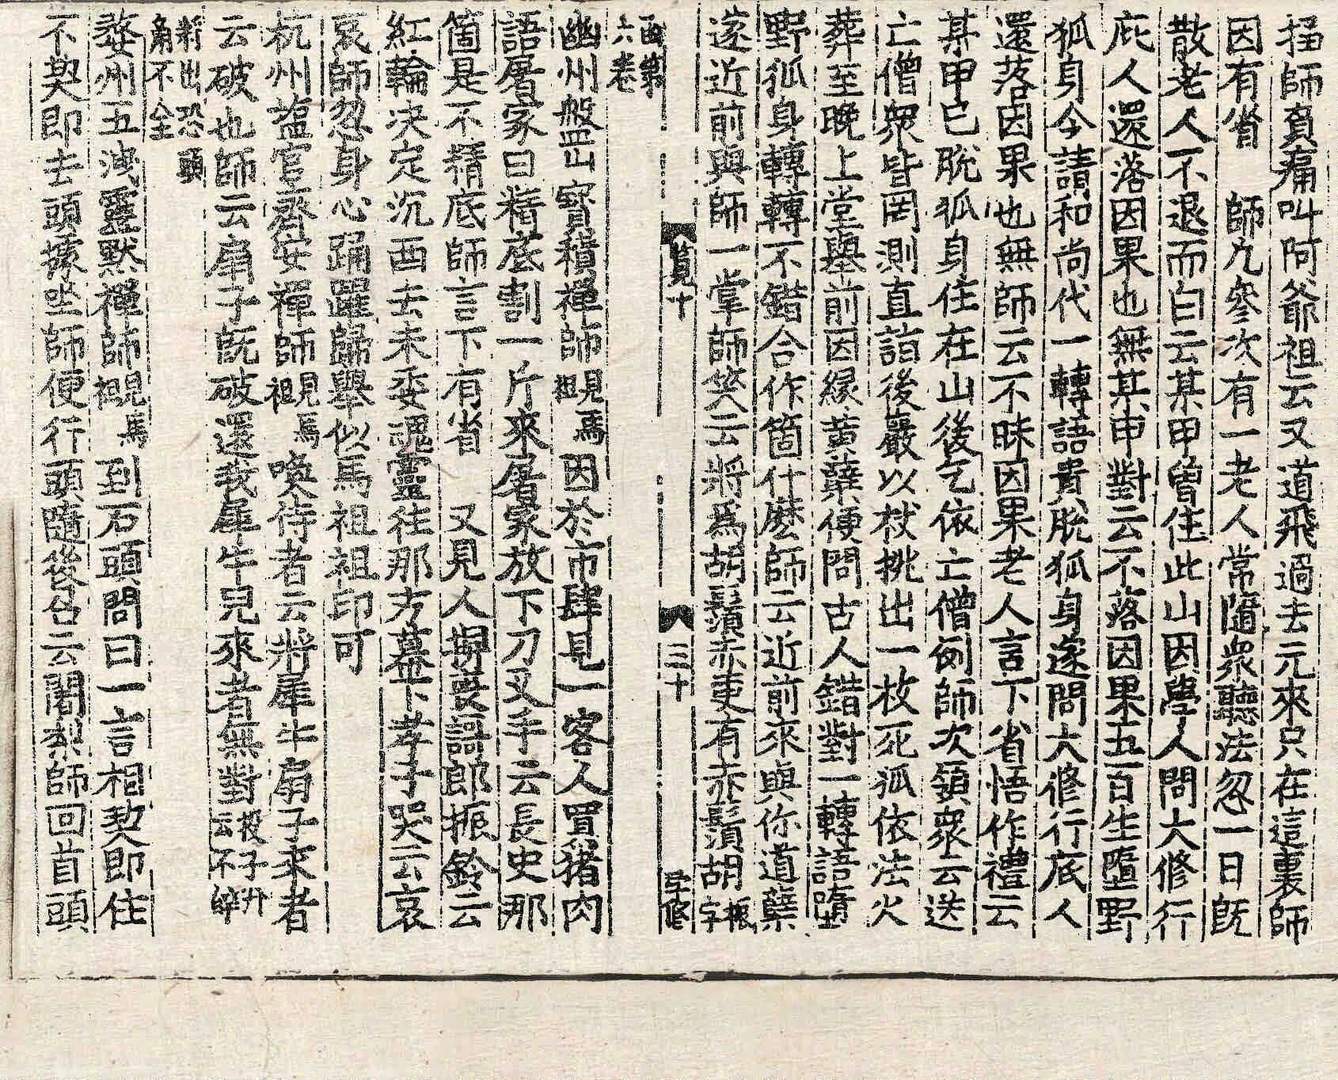 搊師負痛叫阿爺祖云又道飛過去元來只在這裏師
因有省 師凡參次有一老人常隨眾聽法忽一日旣
散老人不退而白云某甲曾住此山因學人問大修行
底人還落因果也無某甲對云不落因果五百生墮野
狐身今請和尚代一轉語貴脫狐身遂問大修行底人
還落因果也無師云不昧因果老人言下省悟作禮云
某甲已脫狐身住在山後乞依亡僧例師次領衆云送
亡僧眾皆罔測直詣後巖以杖挑出一枚死狐依法火
葬至晚上堂舉前因緣黃蘗便問古人錯對一轉語墮
野狐身轉轉不錯合作箇什麽師云近前來與你道蘗
遂近前與師一掌師笑云將爲胡鬚赤更有赤鬚胡
字修
覧十 三十
六卷
幽州盤山寶積禪師見馬祖因於市肆見一客人買猪肉
語屠家曰精底割一斤來屠家放下刀叉手云長史那
箇是不精底師言下有省 又見人舁喪謌郎振鈴云
紅輪決定沉西去未委魂靈往那方幕下孝子哭云哀
哀師忽身心踊躍歸舉似馬祖祖印可
杭州塩官齊安禪師見馬祖喚侍者云將犀牛扇子來者
云破也師云扇子旣破還我犀牛兒來者無對投子云不辞
將出恐頭角不全
婺州五洩靈默禪師見馬祖到石頭問曰一言相契即住
不契即去頭據坐師便行頭隨後召云闍梨師回首頭